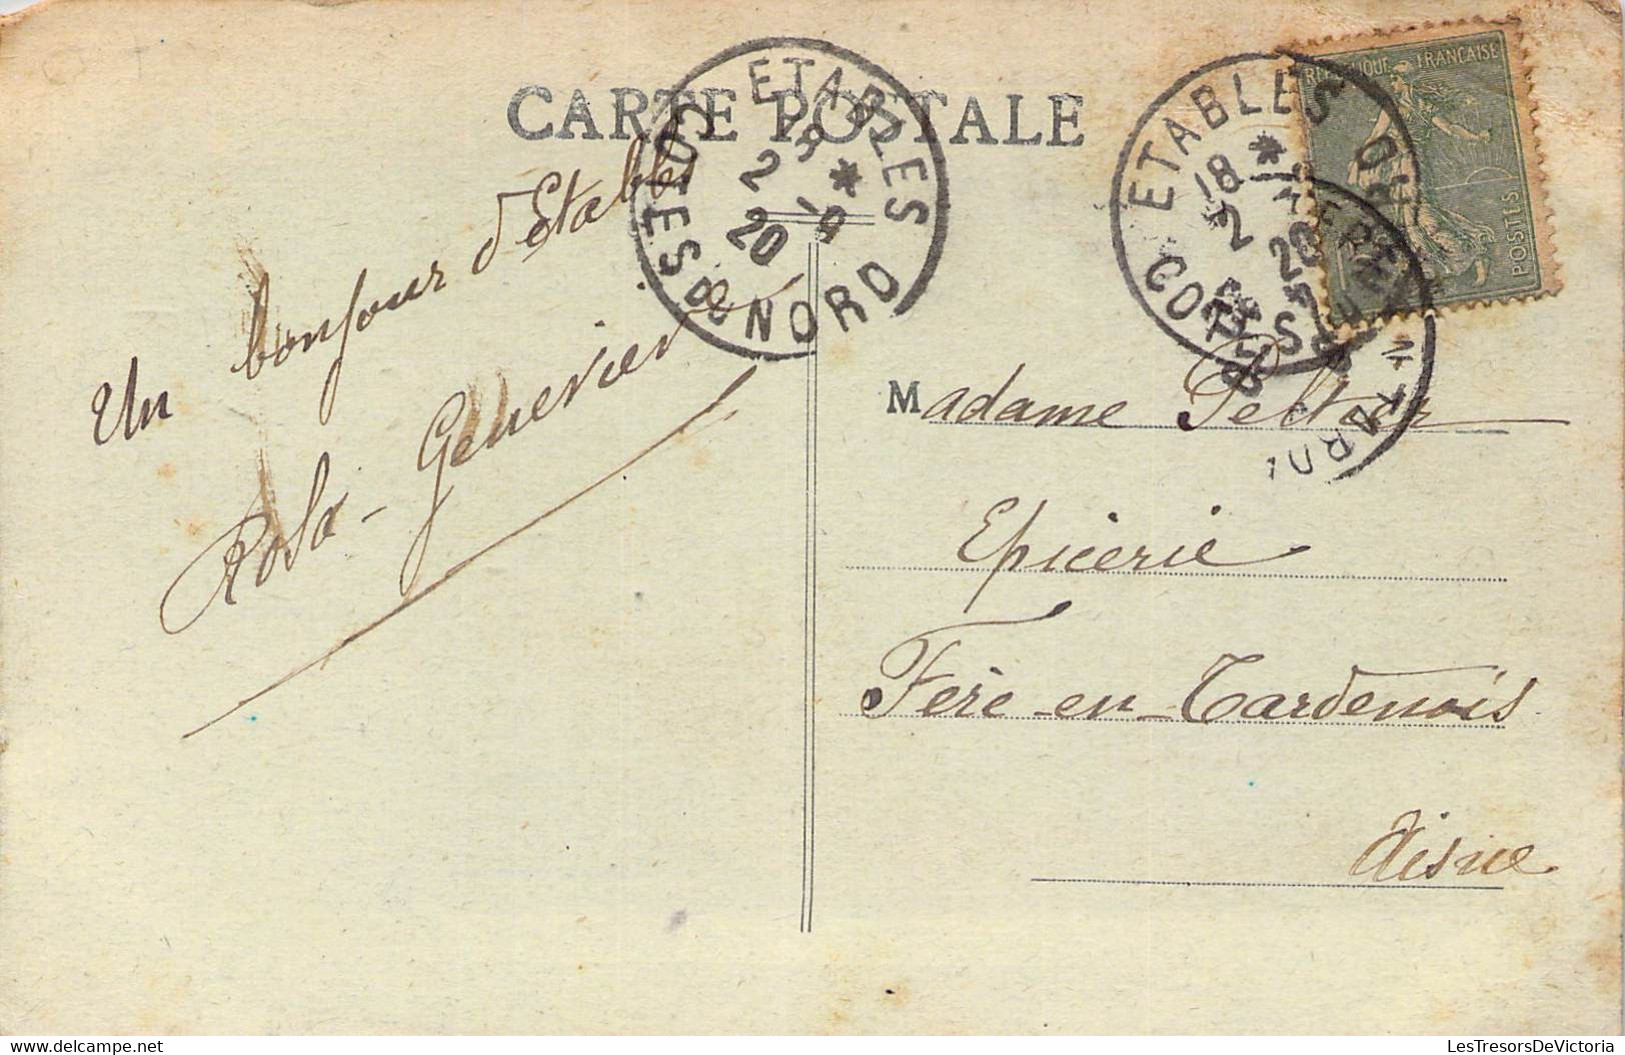 CARTE POSTALE
ETABLES
18
2 -9
20
COTES DU NORD
ETABLES
18
2
20
COTES DU
REPUBLIQUE FRANÇAISE
POSTES
Un bonjour d'Etables
Rosa - Geneviève
Madame
Epicerie
Fère-en-Tardenois
Aisne
LesTresorsDeVictoria